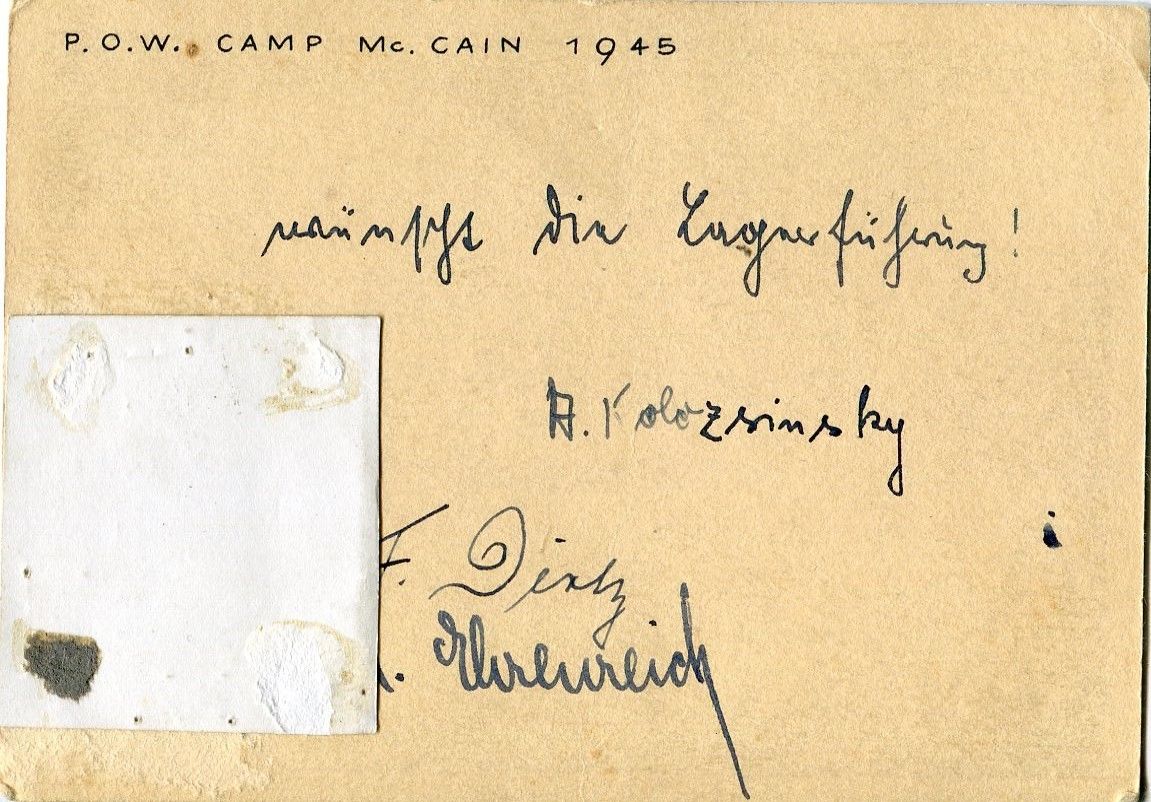 P.O.W. CAMP Mc. CAIN 1945
wünscht die Lagerführung!
A. Kolozsinsky
F. Dietz
. Ehrenreich